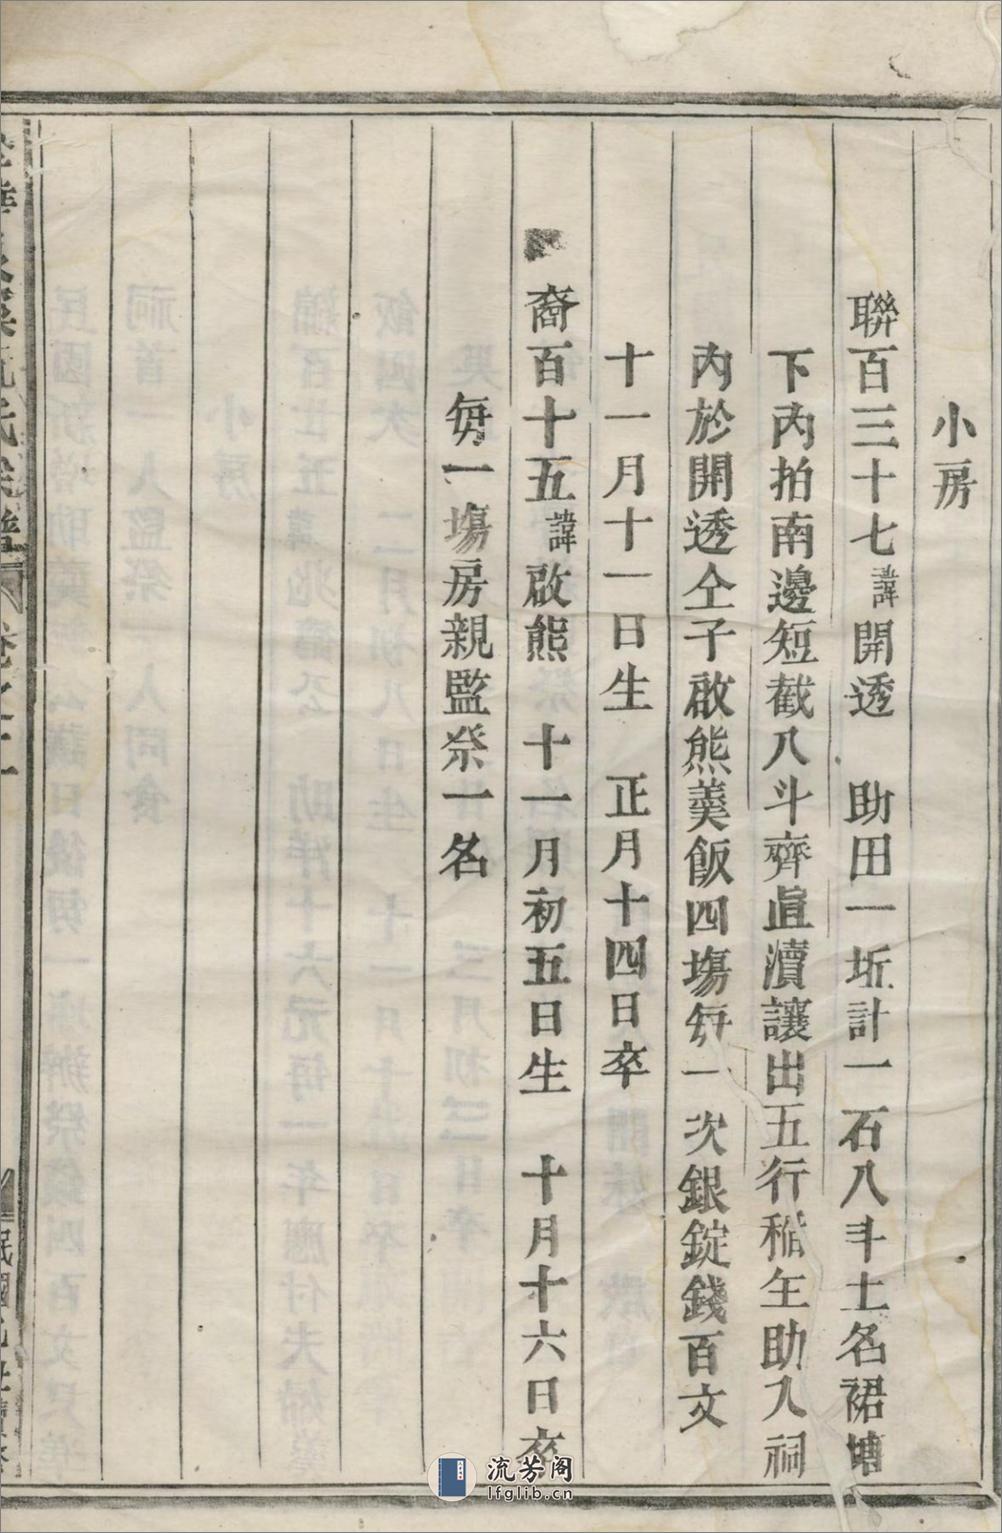 小房
聯百三十七諱開透　助田一坵計一石八斗土名裙塘
下丙拍南邊短截八斗齊直瀆讓出五行稻在助入祠
內於開透仝子啟熊羹飯四塲每一次銀錠錢百文
十一月十一日生　正月十四日卒
裔百十五諱啟熊　十一月初五日生　十月十六日卒
每一塲房親監祭一名
氏
卷之十一
民國
流芳阁
lfglib.cn